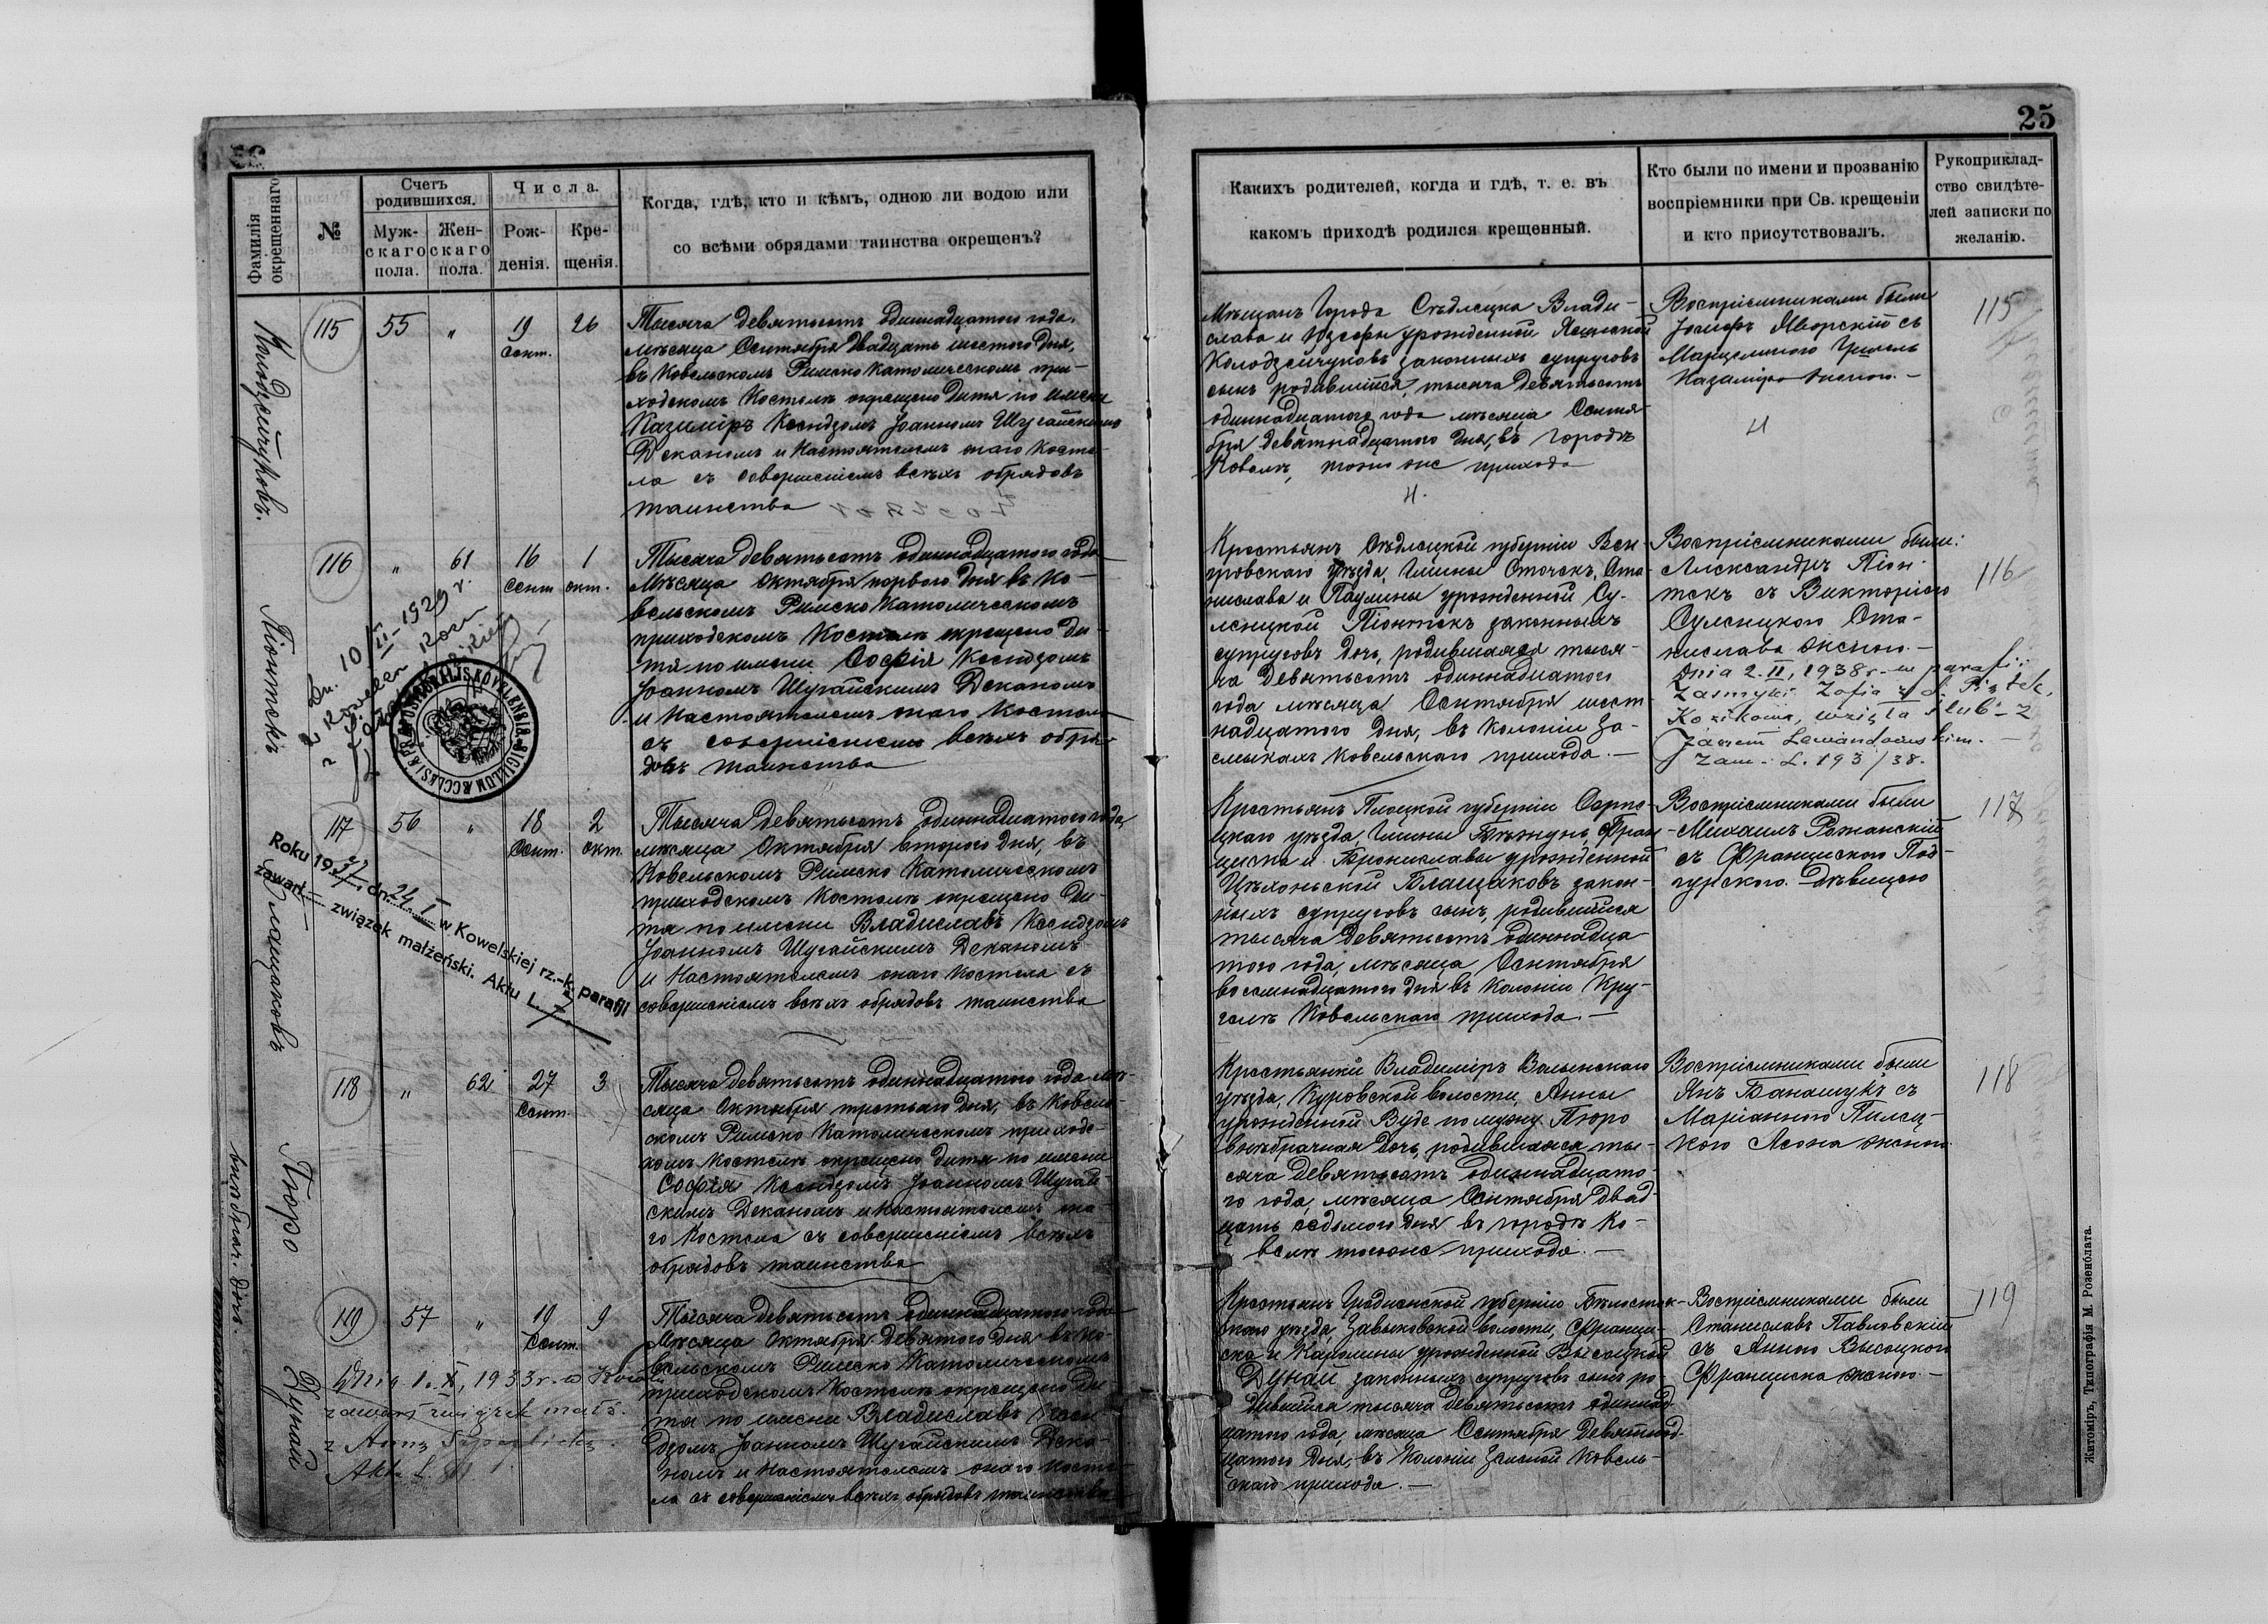 25
Фамилія окрещеннаго
№
Счетъ родившихся.
Муж-скаго пола.
Жен-скаго пола.
Числа.
Рож-денія.
Кре-щенія.
Когда, гдѣ, кто и кѣмъ, одною ли водою или
со всѣми обрядами таинства окрещенъ?
Какихъ родителей, когда и гдѣ, т. е. въ
какомъ приходѣ родился крещенный.
Кто были по имени и прозванію
воспріемники при Св. крещеніи
и кто присутствовалъ.
Рукоприклад-
ство свидѣте-
лей записки по
желанію.
Колодзейчуковъ.
115 55 " 19 Сент. 26
Тысяча девятьсотъ одиннадцатого года,
мѣсяца Сентября двадцать шестого дня,
въ Ковельскомъ Римско Католическомъ при-
ходскомъ Костелѣ окрещено дитя по имени
Казиміръ Ксендзомъ Іоанномъ Шугайскимъ
Деканомъ и Настоятелемъ онаго Косте-
ла съ совершеніемъ всѣхъ обрядовъ
таинства
Мѣщанъ Города Сѣдлецка Влади-
слава и Юзефы урожденной
Колодзейчуковъ законныхъ супруговъ
сынъ родившійся, тысяча девятьсотъ
одиннадцатого года мѣсяца Сентя-
бря девятнадцатого дня, въ городѣ
Ковелѣ, того же прихода
Воспріемниками были
Іосифъ Яворскій съ
Казиміра женою.
115
Піонтекъ
116 " 61 16 Сент. 1 окт.
Тысяча девятьсотъ одиннадцатого года
Мѣсяца Октября перваго дня въ Ко-
вельскомъ Римско Католическомъ
приходскомъ Костелѣ окрещено ди-
тя по имени Софія Ксендзомъ
Іоанномъ Шугайскимъ Деканомъ
и Настоятелемъ онаго Костела
съ совершеніемъ всѣхъ обря-
довъ таинства
Dn. 10/II-1929 r.
Крестьянъ Сѣдлецкой губерніи Вен-
гровскаго уѣзда, Гмины Сточекъ, Ста-
нислава и Паулины урожденной Су-
лецкой Піонтекъ законныхъ
супруговъ дочь, родившаяся тыся-
ча девятьсотъ одиннадцатого
года мѣсяца Сентября шест-
надцатого дня, въ колоніи За-
смыкахъ Ковельскаго прихода. —
Воспріемниками были:
Александръ Піон-
текъ съ Викторіею
Ста-
нислава женою. —
Dnia 2.II, 1938 r. w parafii
Zasmyki Zofia z d. Piątek,
Kozikowa, wzięła ślub z
Lewandowskim. —
Zam. L. 193/38.
116
Блащаковъ
117 56 " 18 Сент. 2 окт.
Тысяча девятьсотъ одиннадцатого года,
мѣсяца Октября второго дня, въ
Ковельскомъ Римско Католическомъ
приходскомъ Костелѣ окрещено ди-
тя по имени Владиславъ Ксендзомъ
Іоанномъ Шугайскимъ Деканомъ
и Настоятелемъ онаго Костела съ
совершеніемъ всѣхъ обрядовъ таинства
Roku 19 37 dn. 24 I w Kowelskiej rz.-k. parafji
zawarł — związek małżeński. Aktu L. 7
Крестьянъ Плоцкой губерніи Серпе-
цкаго уѣзда, Гмины Бѣжунь, Фран-
циска и Брониславы урожденной
Цѣхоньской Блащаковъ закон-
ныхъ супруговъ сынъ, родившійся
тысяча девятьсотъ одиннадца-
того года, мѣсяца Сентября
восемнадцатого дня въ Колоніи Кру-
гелъ Ковельскаго прихода. —
Воспріемниками были
Михаилъ Рожанскій
съ Францискою Под-
гурскою. Дѣвицею
117
Пюро
внѣбрачн. дочь.
118 " 62 27 Сент. 3
Тысяча девятьсотъ одиннадцатого года мѣ-
сяца Октября третьяго дня, въ Ковель-
скомъ Римско Католическомъ приходс-
комъ Костелѣ окрещено дитя по имени
Софія Ксендзомъ Іоанномъ Шугай-
скимъ Деканомъ и Настоятелемъ она-
го Костела съ совершеніемъ всѣхъ
обрядовъ таинства
Крестьянки Владиміръ Волынскаго
уѣзда, Купровской волости, Анны
урожденной Вудс по мужу Пюро
внѣбрачная дочь, родившаяся ты-
сяча девятьсотъ одиннадцато-
го года, мѣсяца Сентября двад-
цать седьмого дня въ городѣ Ко-
велѣ тогоже прихода. —
Воспріемниками были
Янъ Банашукъ съ
Маріанною Пилец-
кою женою
118
Дунай
119 57 " 19 Сент. 9
Тысяча девятьсотъ одиннадцатого года
Мѣсяца Октября девятого дня въ Ко-
вельскомъ Римско Католическомъ
приходскомъ Костелѣ окрещено ди-
тя по имени Владиславъ Ксен-
дзомъ Іоанномъ Шугайскимъ Дека-
номъ и Настоятелемъ онаго Косте-
ла съ совершеніемъ всѣхъ обрядовъ таинства
Dnia 1.X, 1933 r. w Kowlu
zawarł związek małż.
z Anną
Akt L.
Крестьянъ Гродненской губерніи Бѣлосток-
скаго уѣзда, Завыковской волости, Франци-
ска и Каролины урожденной Высоцкой
Дунай законныхъ супруговъ сынъ ро-
дившійся тысяча девятьсотъ одиннад-
цатого года, мѣсяца Сентября девятнад-
цатого дня, въ Колоніи Зеленой Ковель-
скаго прихода. —
Воспріемниками были
Станиславъ Павловскій
съ Анною Высоцкою
Франциска женою. —
119
Житоміръ, Типографія М. Розенблата.